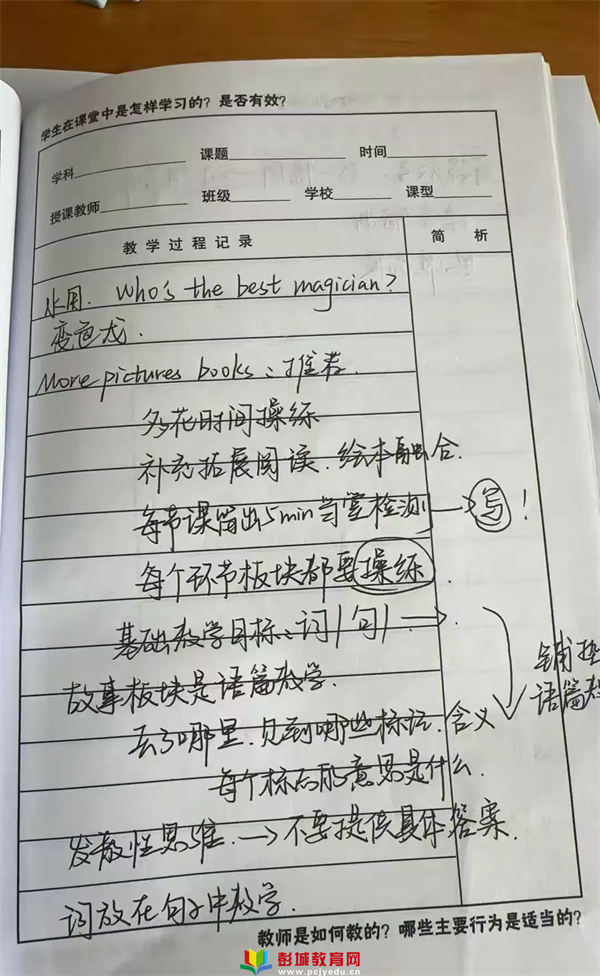 学生在课堂中是怎样学习的？是否有效？
学科 课题 时间
授课教师 班级 学校 课型
教学过程记录 简析
Who's the best magician?
变色龙.
More pictures books：推荐.
多花时间操练
补充拓展阅读.绘本融合.
每节课留出5min当堂检测→写！
每个环节板块都要操练.
基础教学目标：词/句/→.
铺垫
故事板块是语篇教学.
语篇
去了哪里.见到哪些标识.含义
每个标识的意思是什么.
发散性思维.→不要提供具体答案.
词放在句子中教学.
教师是如何教的？哪些主要行为是适当的？
彭城教育网
www.pcjyedu.cn